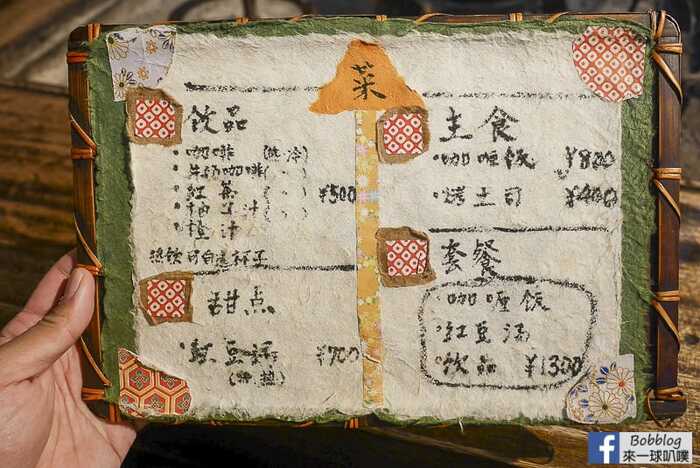 菜
饮品
·咖啡 (热.冷)
·牛奶咖啡 ( 〃 )
·紅茶 ( 〃 ) ¥500
·柚子汁 ( 〃 )
·橙汁
热飲可自選杯子
甜点
·紅豆湯 ¥700
主食
·咖喱飯 ¥800
·烤土司 ¥400
套餐
·咖喱飯
·紅豆湯
·饮品 ¥1300
Bobblog
來一球叭噗